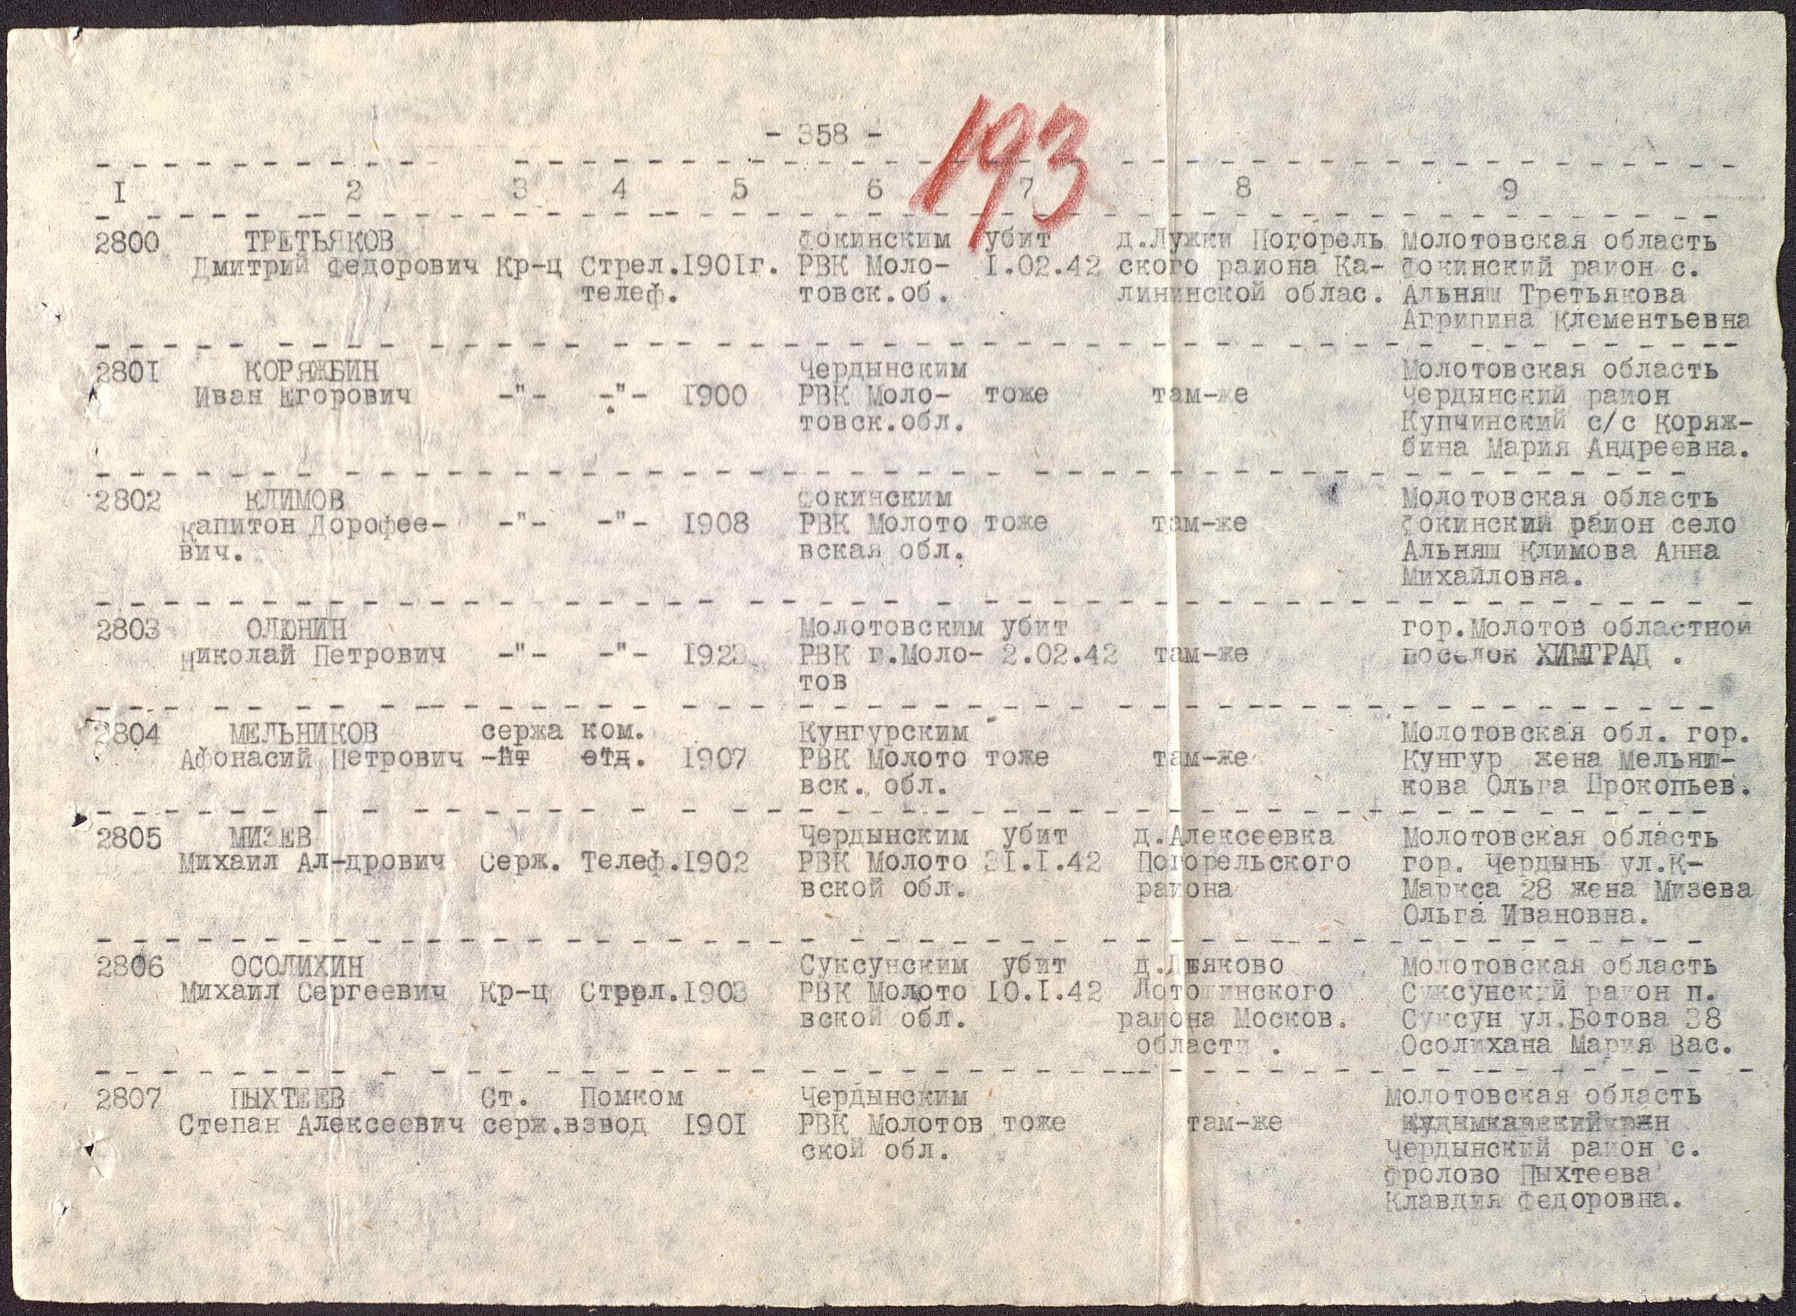 - 358 -
193
I 2 3 4 5 6 7 8 9
2800 ТРЕТЬЯКОВ Фокинским убит д.Лужки Погорель Молотовская область
Дмитрий Федорович Кр-ц Стрел. 1901г. РВК Моло- I.02.42 ского района Ка- Фокинский район с.
телеф. товск.об. лининской облас. Альняш Третьякова
Агрипина Клементьевна
2801 КОРЯЖБИН Чердынским Молотовская область
Иван Егорович -"- -"- 1900 РВК Моло- тоже там-же Чердынский район
товск.обл. Купчинский с/с Коряж-
бина Мария Андреевна.
2802 КЛИМОВ Фокинским Молотовская область
Капитон Дорофее- -"- -"- 1908 РВК Молото тоже там-же Фокинский район село
вич. вская обл. Альняш Климова Анна
Михайловна.
2803 ОЛЮНИН Молотовским убит гор.Молотов областной
Николай Петрович -"- -"- 1923 РВК г.Моло- 2.02.42 там-же поселок ХИМГРАД .
тов
2804 МЕЛЬНИКОВ сержа ком. Кунгурским Молотовская обл. гор.
Афонасий Петрович -нт отд. 1907 РВК Молото тоже там-же Кунгур жена Мельни-
вск. обл. кова Ольга Прокопьев.
2805 МИЗЕВ Чердынским убит д.Алексеевка Молотовская область
Михаил Ал-дрович Серж. Телеф. 1902 РВК Молото 31.I.42 Погорельского гор. Чердынь ул.К-
вской обл. района Маркса 28 жена Мизева
Ольга Ивановна.
2806 ОСОЛИХИН Суксунским убит Молотовская область
Михаил Сергеевич Кр-ц Стрел. 1903 РВК Молото 10.I.42 Лотошинского Суксунский район п.
вской обл. района Москов. Суксун ул.Ботова 38
области . Осолихана Мария Вас.
2807 ПЫХТЕЕВ Ст. Помком Чердынским Молотовская область
Степан Алексеевич серж. взвод 1901 РВК Молотов тоже там-же
ской обл. Чердынский район с.
Фролово Пыхтеева
Клавдия Федоровна.